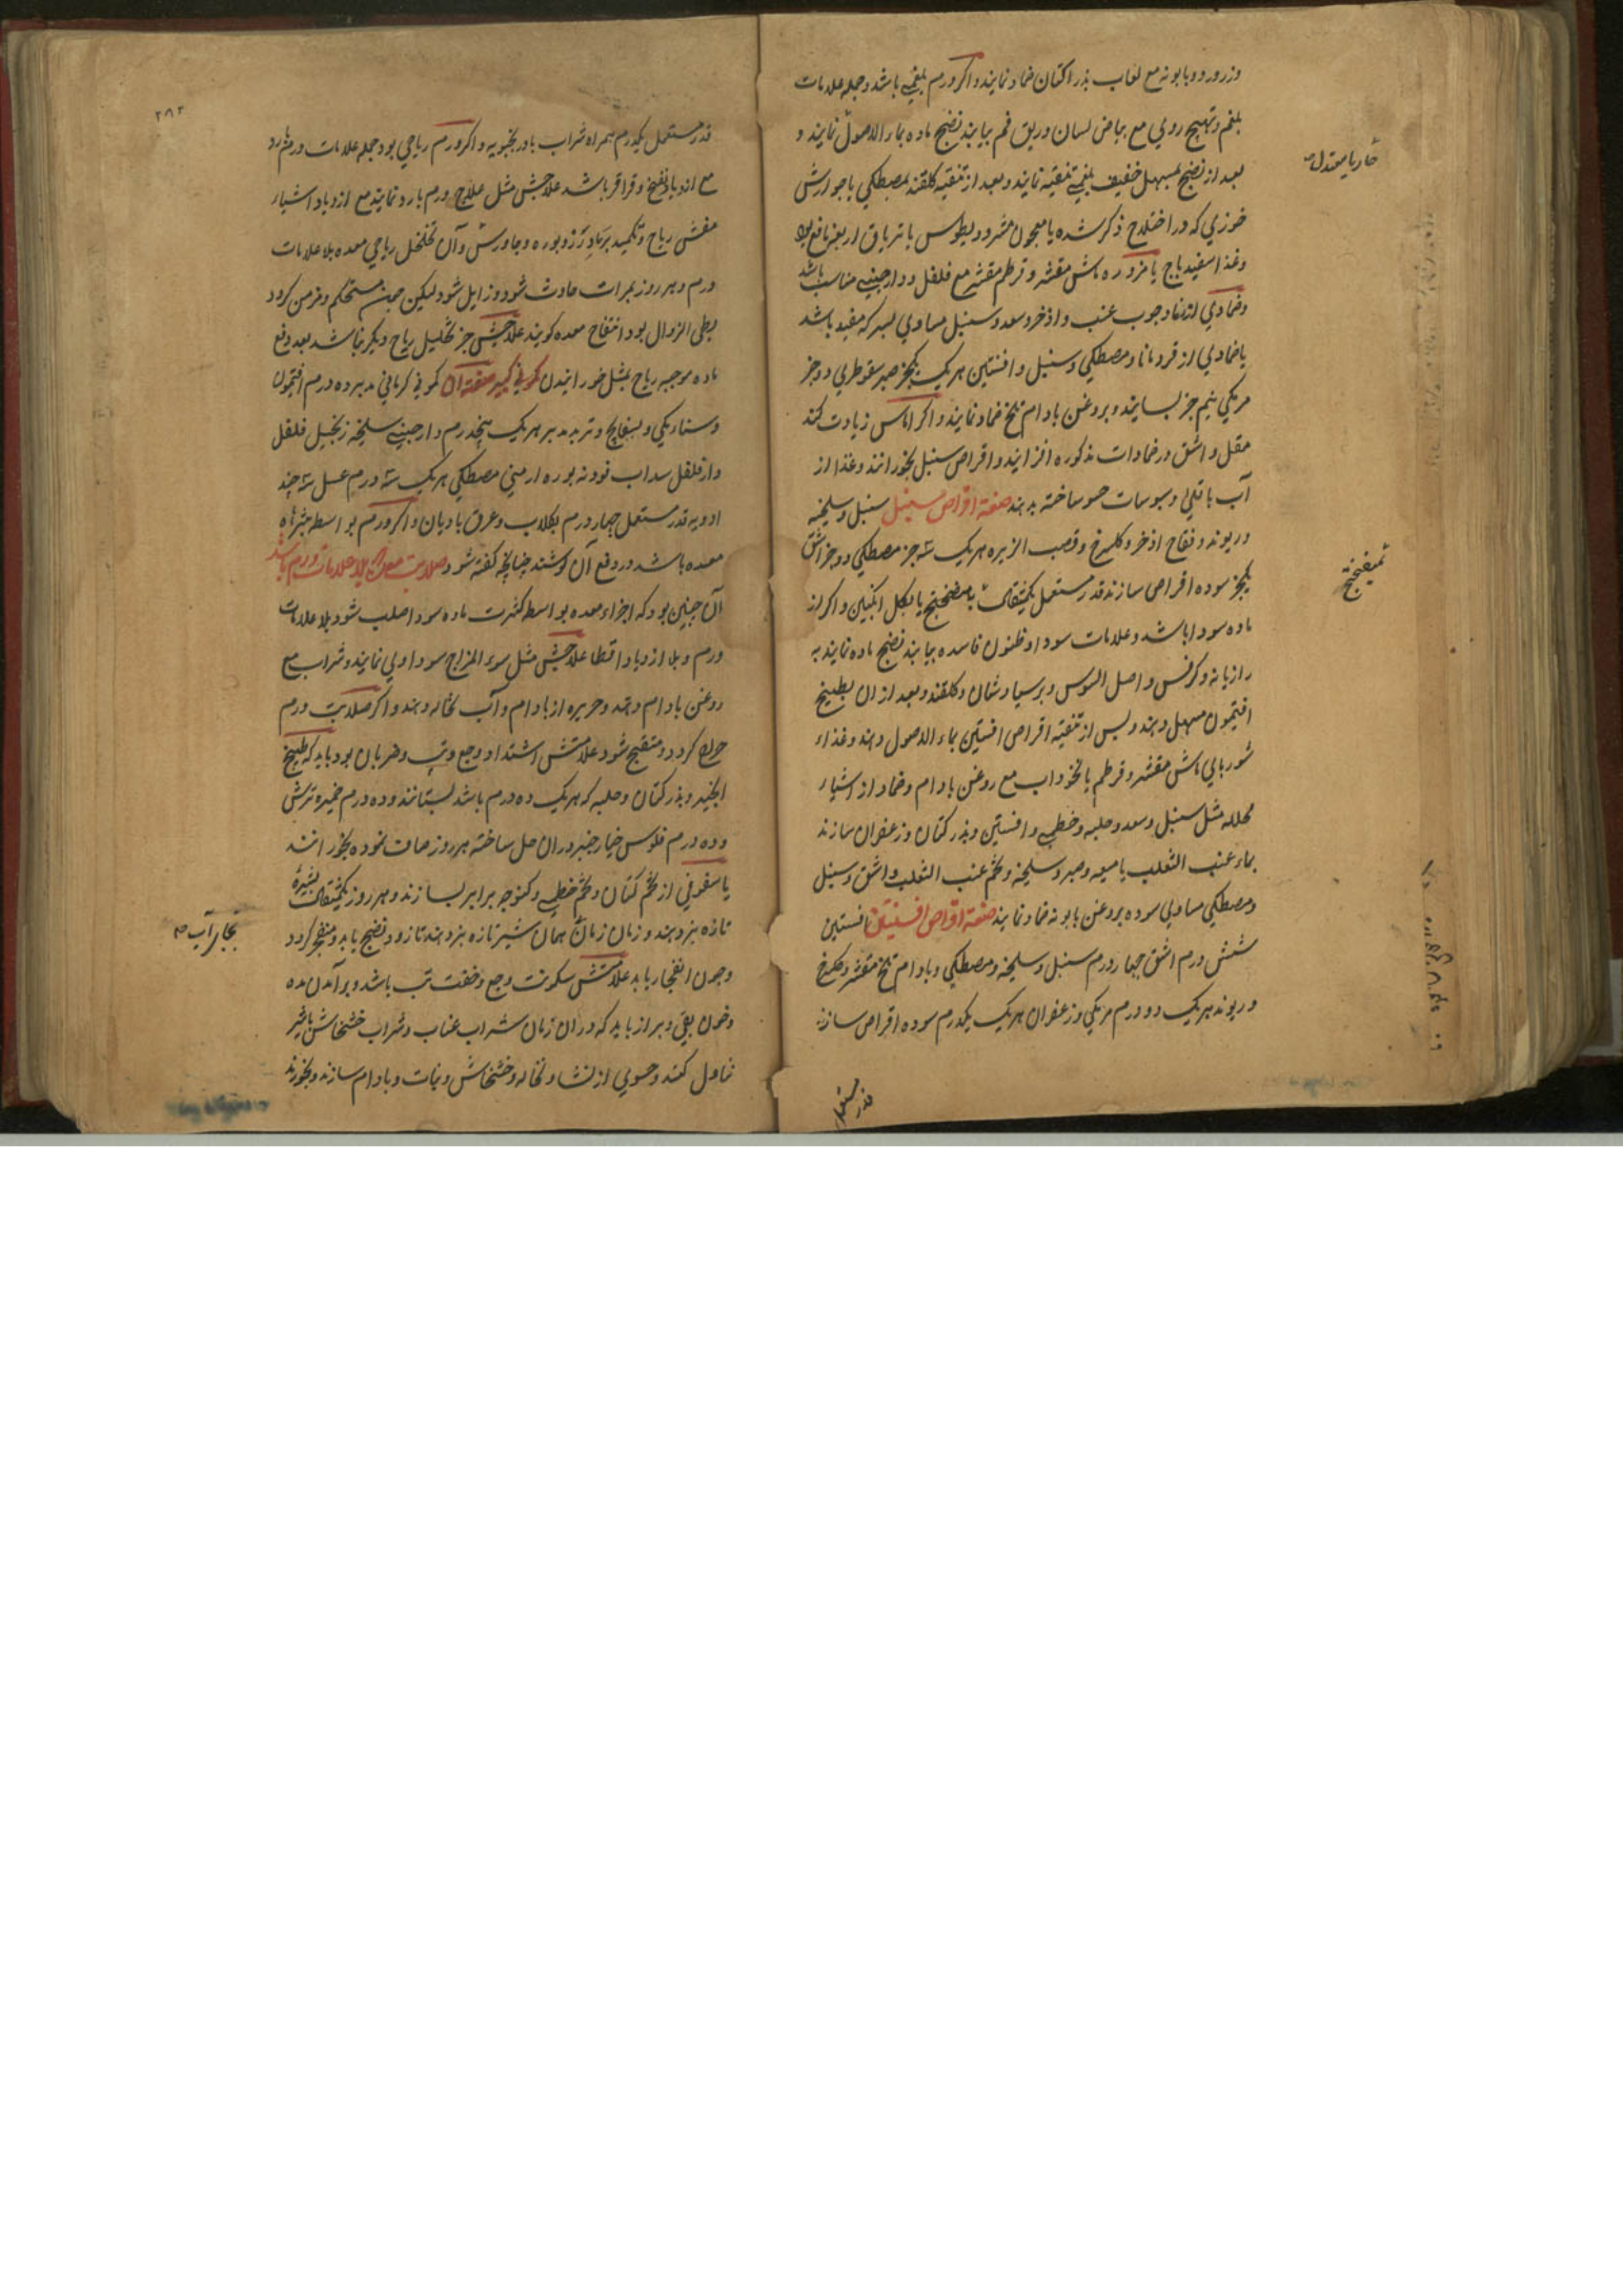 وزرورد و بابونه مع لعاب بذر الکتان ضماد نمایند و اکر ورم بلغمی باشد و جمله علامات
بلغم و تهیج روی مع بیاض لسان و ریق فم بیابند نضج ماده بماء الاصول نمایند و
بعد از نضج بمسهل خفیف بلغم تنقیه نمایند و بعد از تنقیه کلقند بمصطکی یا جوارش
خوزی که در اختلاج ذکر شده یا معجون مثرودیطوس یا تریاق اربعه نافع بود
وغذا اسفیدباج یا مزوره ماش مقشر و قرطم مقشر مع فلفل و دارچینی مناسب باشد
وضمادی از رماد چوب عنب و اذخر و سعد و سنبل مساوی بسرکه مفید باشد
یا ضمادی از قردمانا و مصطکی و سنبل و افسنتین هر یک یکجز صبر سقوطری دو جز
مر مکی نیم جز بسایند و بروغن بادام تلخ ضماد نمایند و اکر الماس زیادت کند
مقل و اشق در ضمادات مذکوره افزایند و اقراص سنبل بخورانند و غذا از
آب باقلی و سبوسات حسو ساخته بدهند صفة اقراص سنبل سنبل و سلیخه
وریوند و فقاح اذخر و کلسرخ و قصب الزیره هر یک سه جز مصطکی دو جز اشق
یکجز سوده اقراص سازند قدر مستعمل یکمثقال با میفختج یا بکل انکبین و اکر از
ماده سودا باشد و علامات سودا و ظنون فاسده بیابند نضج ماده نمایند به
رازیانه و کرفس و اصل السوس و پرسیاوشان و کلقند و بعد از ان بطبیخ
افتیمون مسهل دهند و پس از تنقیه اقراص افسنتین بماء الاصول دهند و غذاء
شوربای ماش مقشر و قرطم یا نخوداب مع روغن بادام و ضماد از اشیاء
محلله مثل سنبل و سعد و حلبه و خطمی و افسنتین و بذر کتان و زعفران سازند
بماء عنب الثعلب یا میعه و صبر و سلیخه و تخم عنب الثعلب و اشق و سنبل
ومصطکی مساوی سوده بروغن بابونه ضماد نمایند صفة اقراص افسنتین افسنتین
شش درم اشق چهار درم سنبل و سلیخه و مصطکی و بادام تلخ مقشر و کلسرخ
وریوند هر یک دو درم مر مکی و زعفران هر یک یکدرم سوده اقراص سازند
قدر مستعمل
حار یا معتدل
میفختج
٢٨٢
قدر مستعمل یکدرم همراه شراب بادرنجبویه و اکر ورم ریاحی بود جمله علامات ورم بارد
مع ازدیاد نفخ و قراقر باشد علاجش مثل علاج ورم بارد نمایند مع ازدیاد اشیاء
مفش ریاح و تکمید برماد رز و بوره و جاورس و آن تخلخل ریاحی معده بلا علامات
ورم و هر روز بمرات حادث شود و زایل شود لیکن چون مستحکم و مزمن کردد
بطی الزوال بود انتفاخ معده کویند علاجش جز تحلیل ریاح دیکر نباشد بعد دفع
ماده موجبه ریاح بمثل خورانیدن کمونی کبیر صفة ان کمونی کرمانی مدبر ده درم افتیمون
وسناء مکی و بسفایج و تربد مدبر هر یک پنجدرم دارچینی سلیخه زنجبیل فلفل
دارفلفل سداب فودنه بوره ارمنی مصطکی هر یک سه درم عسل سه چند
ادویه قدر مستعمل چهار درم بکلاب و عرق بادیان و اکر ورم بواسطه بثرهاء
معده باشد در دفع آن کوشند چنانچه کفته شود صلابت معده بلا علامات ورم باشد
آن چنین بود که اجزاء معده بواسطه کثرت ماده سودا صلب شود بلا علامات
ورم و بلا ازدیاد اقتطا علاجش مثل سوء المزاج سوداوی نمایند و شراب مع
روغن بادام دهند و حریره از بادام و آب نخاله دهند و اکر صلابت ورم
خراج کردد و متقیح شود علامتش اشتداد وجع و تب و ضربان بود باید که طبیخ
انجیر و بذر کتان و حلبه که هر یک ده درم باشد بستانند و ده درم خمیره ترش
و ده درم فلوس خیارچنبر در ان حل ساخته هر روز صاف نموده بخورانند
یا سفوفی از تخم کتان و تخم خطمی و کنوچه برابر بسازند و هر روز یکمثقال بشیره
تازه بز دهند و زمان زمان همان شیر تازه بز دهند تا زود نضج یابد و منفجر کردد
وچون انفجار یابد علامتش سکونت وجع و خفت تب باشد و برآمدن مده
وخون بقی و براز باید که در ان زمان شراب عناب و شراب خشخاش با شیر
تناول کنند و حسوی از نشا و نخاله و خشخاش و نبات و بادام سازند و بخورند
بجای آب